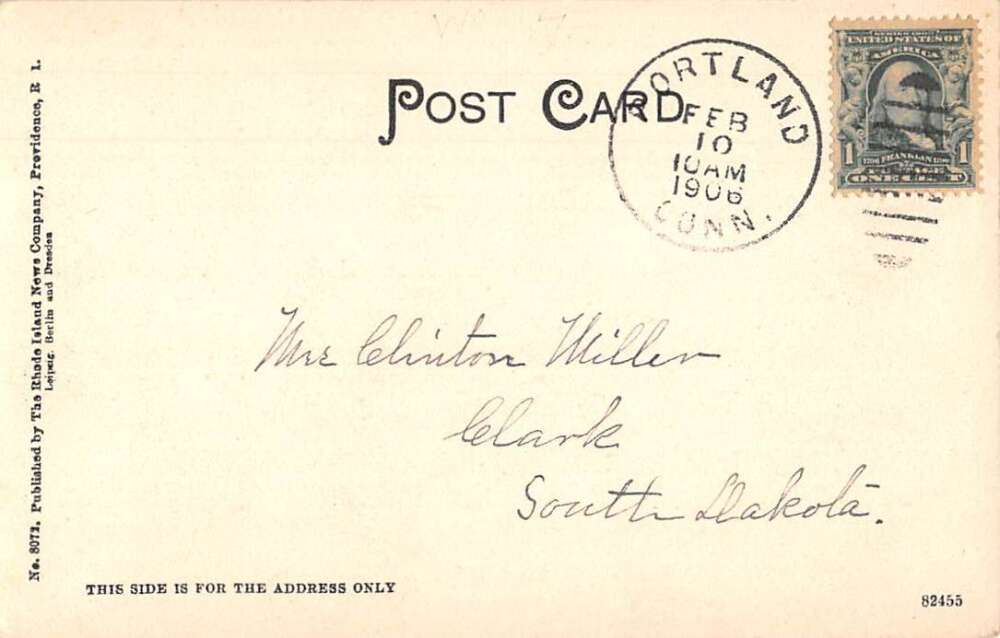 POST CARD
PORTLAND
FEB
10
10AM
1906
CONN.
SERIES 1902
UNITED STATES OF
AMERICA
1 FRANKLIN 1
ONE CENT
Mrs Clinton Miller
Clark
South Dakota.
No. 8072. Published by The Rhode Island News Company, Providence, R I.
Leipzig, Berlin and Dresden
THIS SIDE IS FOR THE ADDRESS ONLY
82455